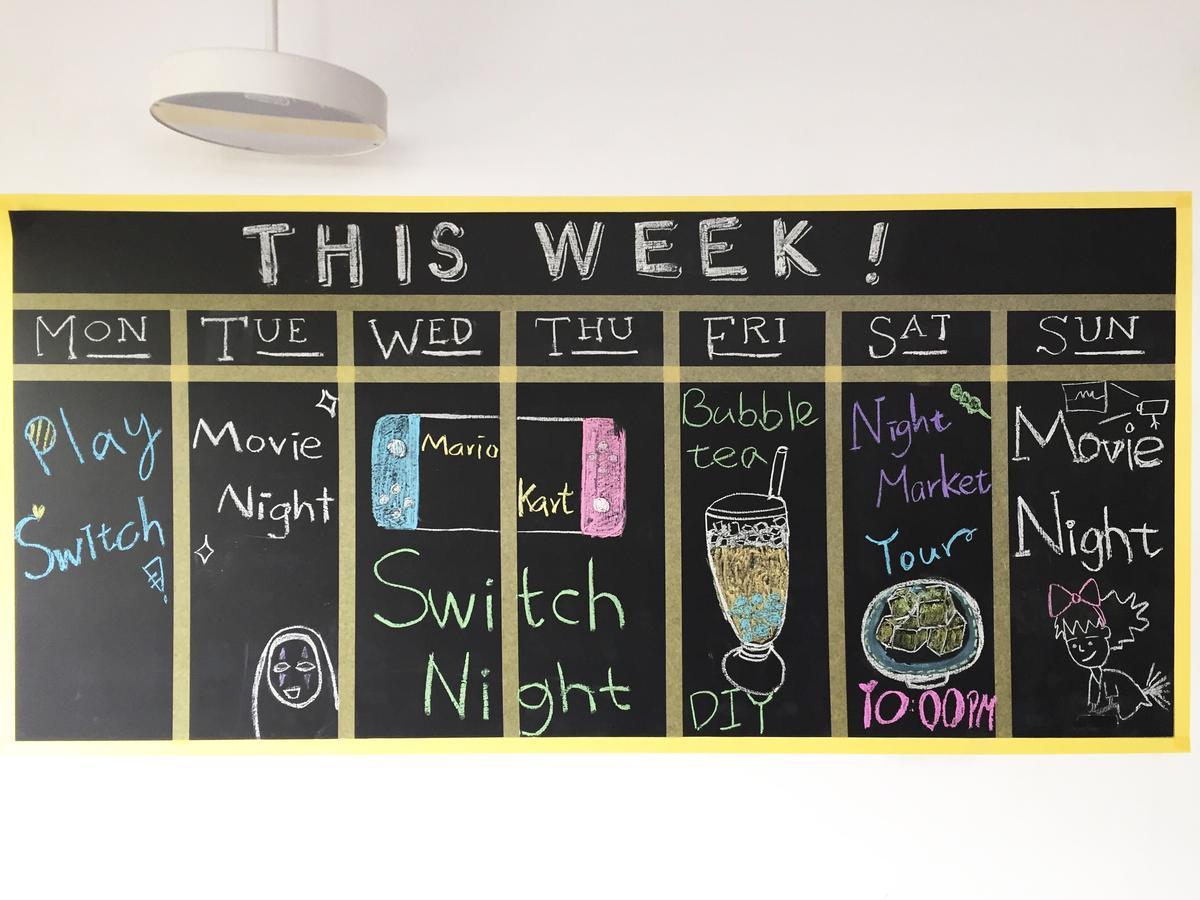 THIS WEEK!
MON
TUE
WED
THU
FRI
SAT
SUN
Play
Switch
Movie
Night
Mario Kart
Switch
Night
Bubble
tea
DIY
Night
Market
Tour
10:00PM
Movie
Night